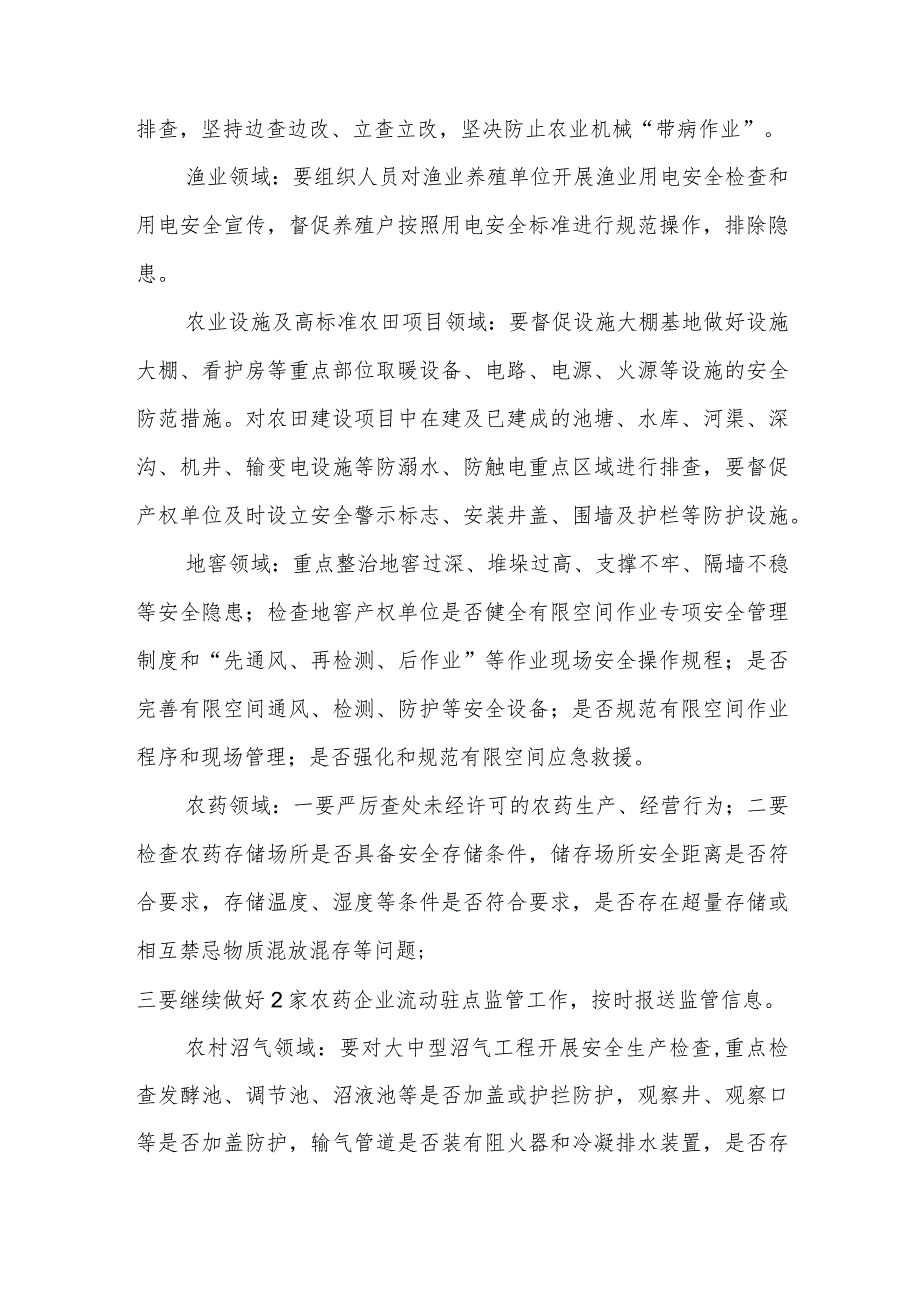 排查，坚持边查边改、立查立改，坚决防止农业机械“带病作业”。
渔业领域：要组织人员对渔业养殖单位开展渔业用电安全检查和
用电安全宣传，督促养殖户按照用电安全标准进行规范操作，排除隐
患。
农业设施及高标准农田项目领域：要督促设施大棚基地做好设施
大棚、看护房等重点部位取暖设备、电路、电源、火源等设施的安全
防范措施。对农田建设项目中在建及已建成的池塘、水库、河渠、深
沟、机井、输变电设施等防溺水、防触电重点区域进行排查，要督促
产权单位及时设立安全警示标志、安装井盖、围墙及护栏等防护设施。
地窖领域：重点整治地窖过深、堆垛过高、支撑不牢、隔墙不稳
等安全隐患；检查地窖产权单位是否健全有限空间作业专项安全管理
制度和“先通风、再检测、后作业”等作业现场安全操作规程；是否
完善有限空间通风、检测、防护等安全设备；是否规范有限空间作业
程序和现场管理；是否强化和规范有限空间应急救援。
农药领域：一要严厉查处未经许可的农药生产、经营行为；二要
检查农药存储场所是否具备安全存储条件，储存场所安全距离是否符
合要求，存储温度、湿度等条件是否符合要求，是否存在超量存储或
相互禁忌物质混放混存等问题;
三要继续做好2家农药企业流动驻点监管工作，按时报送监管信息。
农村沼气领域：要对大中型沼气工程开展安全生产检查,重点检
查发酵池、调节池、沼液池等是否加盖或护拦防护，观察井、观察口
等是否加盖防护，输气管道是否装有阻火器和冷凝排水装置，是否存